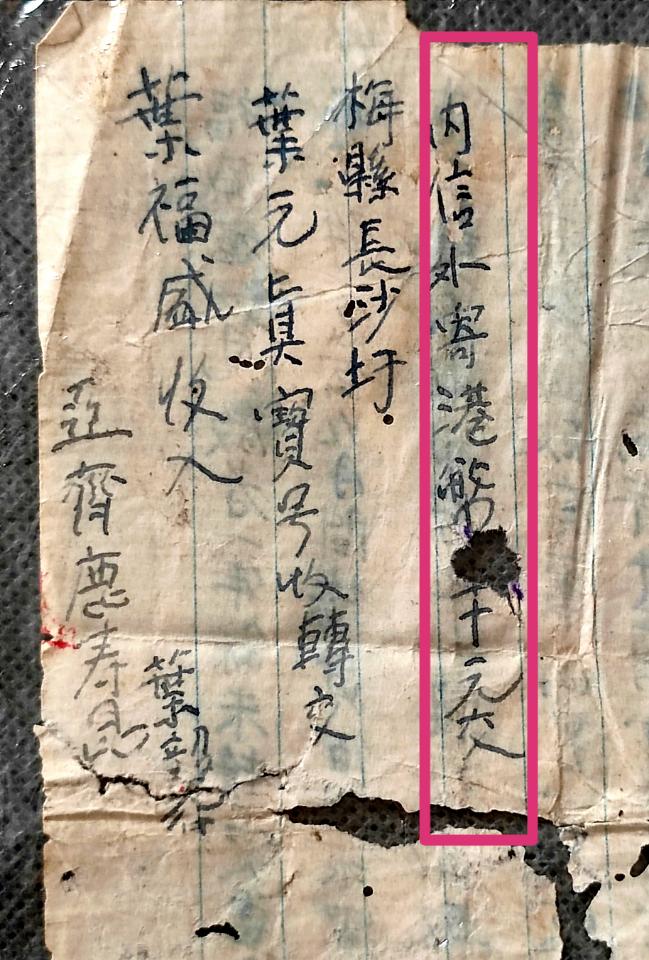 内信外寄港幣 十元六
梅縣長沙圩
葉元貞寶号收轉交
葉福盛收入
亞齊鹿寿
葉